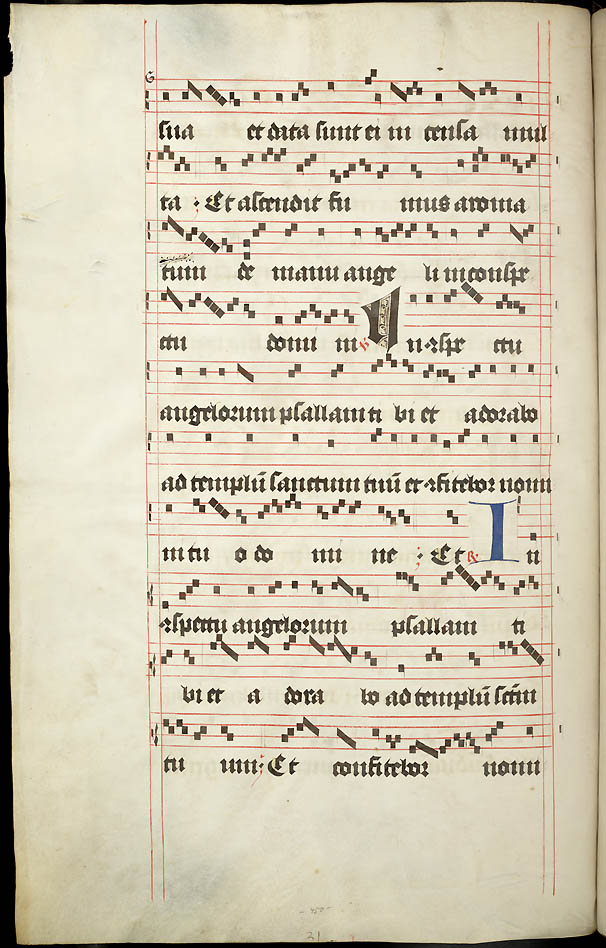 sua et data sunt ei in censa mul
ta : Et ascendit fu mus aroma
tum de manu ange li in conspe
ctu domi ni ℣ In ꝯspe ctu
angelorum psallam ti bi et adorabo
ad templū sanctum tuū et ꝯfitebor nomi
ni tu o do mi ne : Et ℟ In
ꝯspectu angelorum psallam ti
bi et a dora bo ad templū sctm̄
tu um : Et confitebor nomi
31